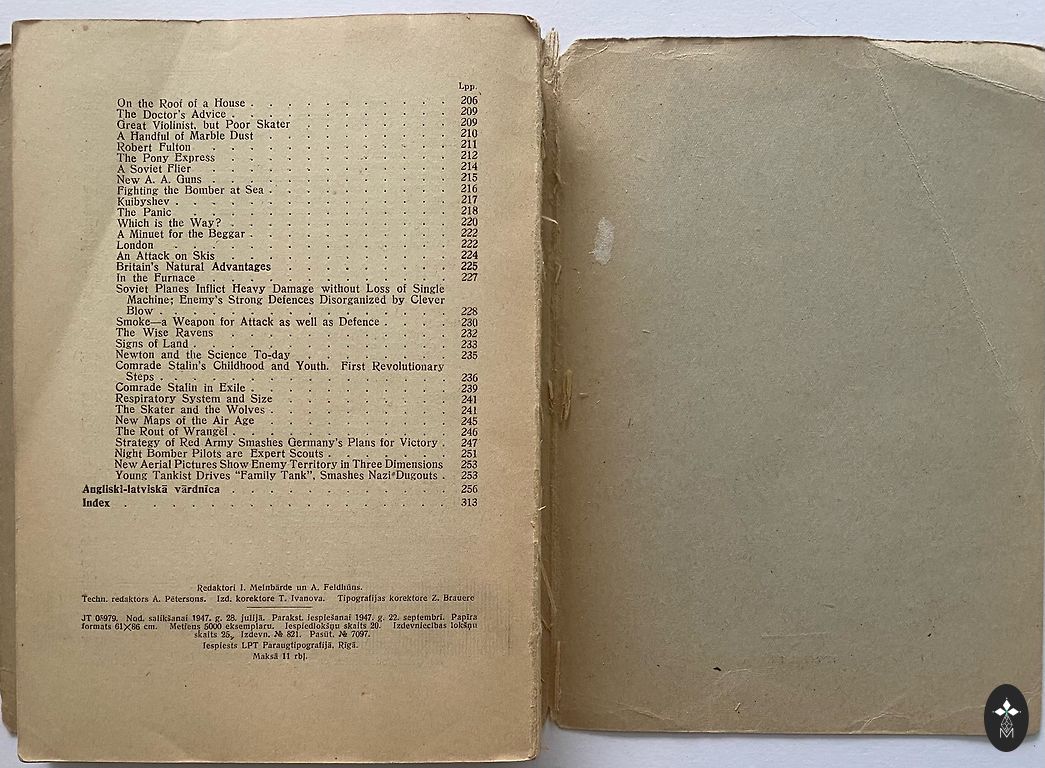 Lpp.
On the Roof of a House . . . . . . . . . . . 206
The Doctor's Advice . . . . . . . . . . . . 209
Great Violinist, but Poor Skater . . . . . . . . . 209
A Handful of Marble Dust . . . . . . . . . . 210
Robert Fulton . . . . . . . . . . . . . 211
The Pony Express . . . . . . . . . . . . 212
A Soviet Flier . . . . . . . . . . . . . 214
New A. A. Guns . . . . . . . . . . . . 215
Fighting the Bomber at Sea . . . . . . . . . . 216
Kuibyshev . . . . . . . . . . . . . . 217
The Panic . . . . . . . . . . . . . . 218
Which is the Way? . . . . . . . . . . . . 220
A Minuet for the Beggar . . . . . . . . . . . 222
London . . . . . . . . . . . . . . . 222
An Attack on Skis . . . . . . . . . . . . 224
Britain's Natural Advantages . . . . . . . . . . 225
In the Furnace . . . . . . . . . . . . . 227
Soviet Planes Inflict Heavy Damage without Loss of Single
Machine; Enemy's Strong Defences Disorganized by Clever
Blow . . . . . . . . . . . . . . . 228
Smoke—a Weapon for Attack as well as Defence . . . . 230
The Wise Ravens . . . . . . . . . . . . 232
Signs of Land . . . . . . . . . . . . . 233
Newton and the Science To-day . . . . . . . . 235
Comrade Stalin's Childhood and Youth. First Revolutionary
Steps . . . . . . . . . . . . . . . 236
Comrade Stalin in Exile . . . . . . . . . . . 239
Respiratory System and Size . . . . . . . . . . 241
The Skater and the Wolves . . . . . . . . . . 241
New Maps of the Air Age . . . . . . . . . . 245
The Rout of Wrangel . . . . . . . . . . . 246
Strategy of Red Army Smashes Germany's Plans for Victory . 247
Night Bomber Pilots are Expert Scouts . . . . . . . 251
New Aerial Pictures Show Enemy Territory in Three Dimensions 253
Young Tankist Drives "Family Tank", Smashes Nazi Dugouts . 253
Angliski-latviskā vārdnīca . . . . . . . . . . . 256
Index . . . . . . . . . . . . . . . . 313
Redaktori I. Meinbārde un A. Feldhūns.
Techn. redaktors A. Pētersons. Izd. korektore T. Ivanova. Tipografijas korektore Z. Brauere
JT 08979. Nod. salikšanai 1947. g. 28. julijā. Parakst. iespiešanai 1947. g. 22. septembri. Papīra
formats 61×86 cm. Metiens 5000 eksemplaru. Iespiedlokšņu skaits 20. Izdevniecības lokšņu
skaits 25. Izdevn. № 821. Pasūt. № 7097.
Iespiests LPT Paraugtipografijā, Rīgā.
Maksā 11 rbļ.
M